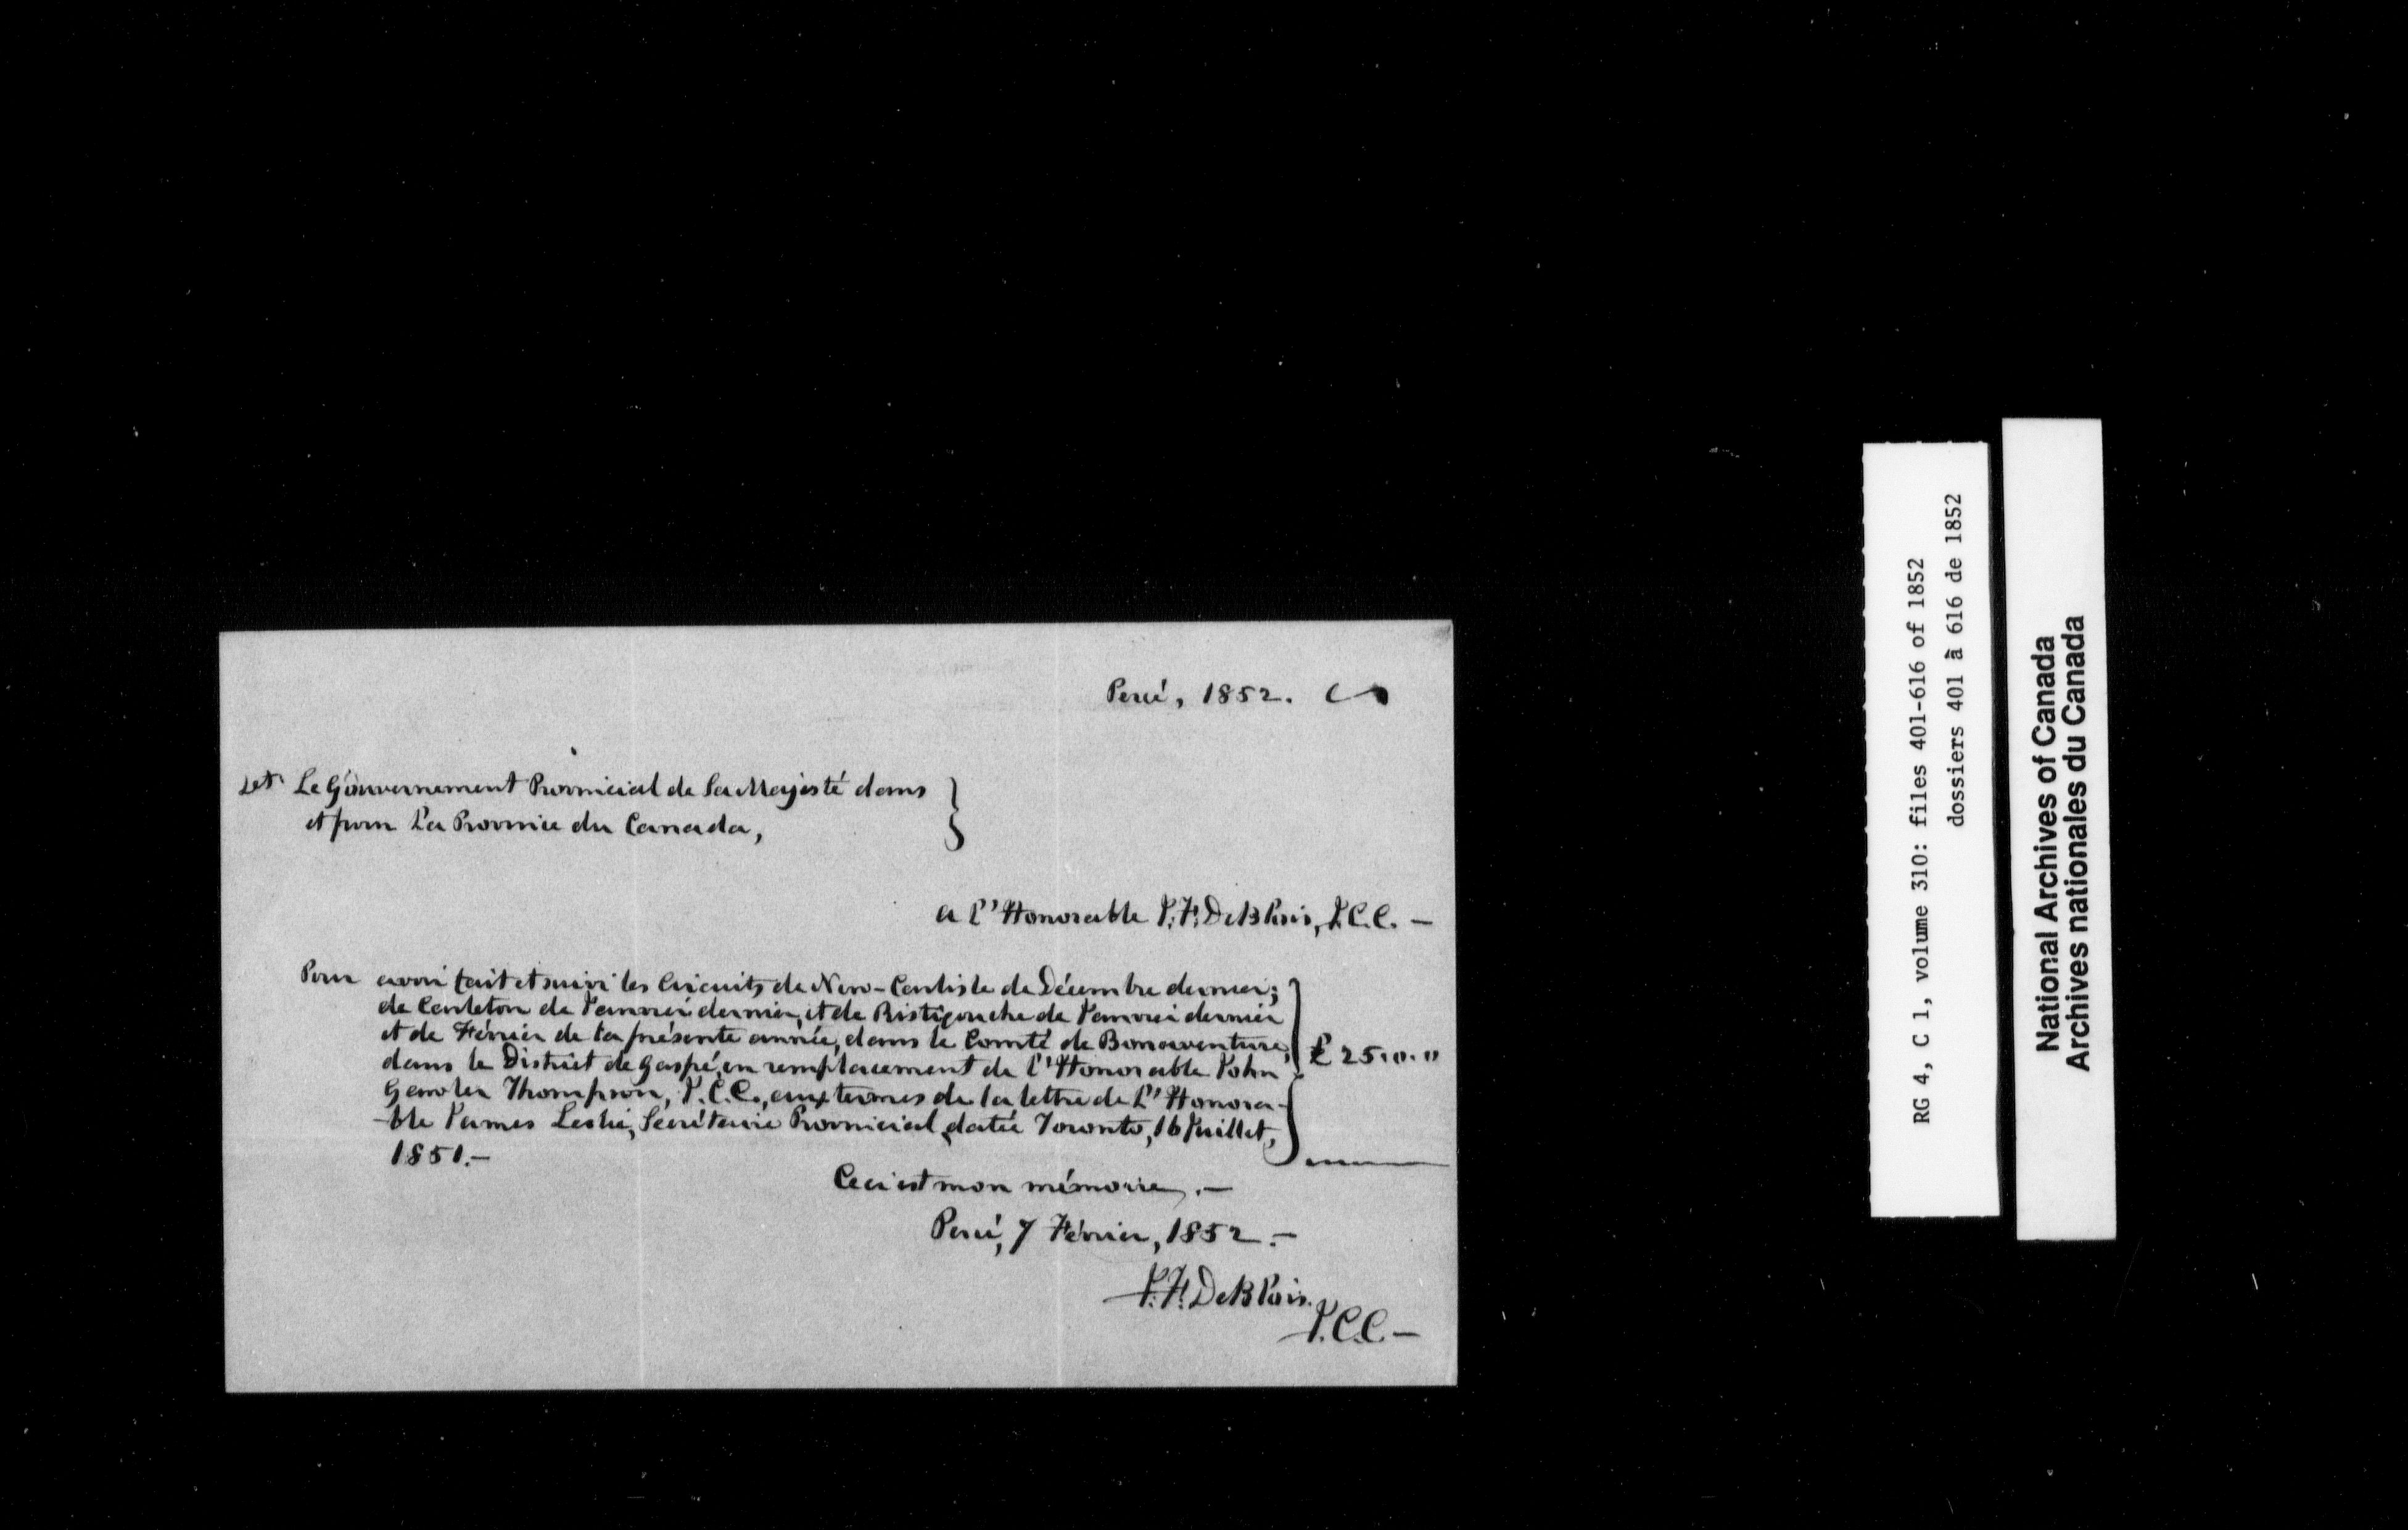 Percé, 1852.
Le Gouvernement Provincial de Sa Majesté dans
et pour La Province du Canada,
a l'Honorable J. F. DeBlois, J.C.C. —
Pour avoir fait et suivi les Circuits de New-Carlisle de Décembre dernier;
de Carleton de Janvier dernier, et de Ristigouche de Janvier dernier
et de Février de la présente année, dans le Comté de Bonaventure,
dans le District de Gaspé, en remplacement de l'Honorable John
Gawler Thompson, J.C.C., aux termes de la lettre de l'Honora-
-ble James Leslie, Secrétaire Provincial, datée Toronto, 16 Juillet,
1851.—
£ 25.0.0
Ceci est mon mémoire.—
Percé, 7 Février, 1852.—
J. F. DeBlois.
J.C.C.—
RG 4, C 1, volume 310: files 401-616 of 1852
dossiers 401 à 616 de 1852
National Archives of Canada
Archives nationales du Canada